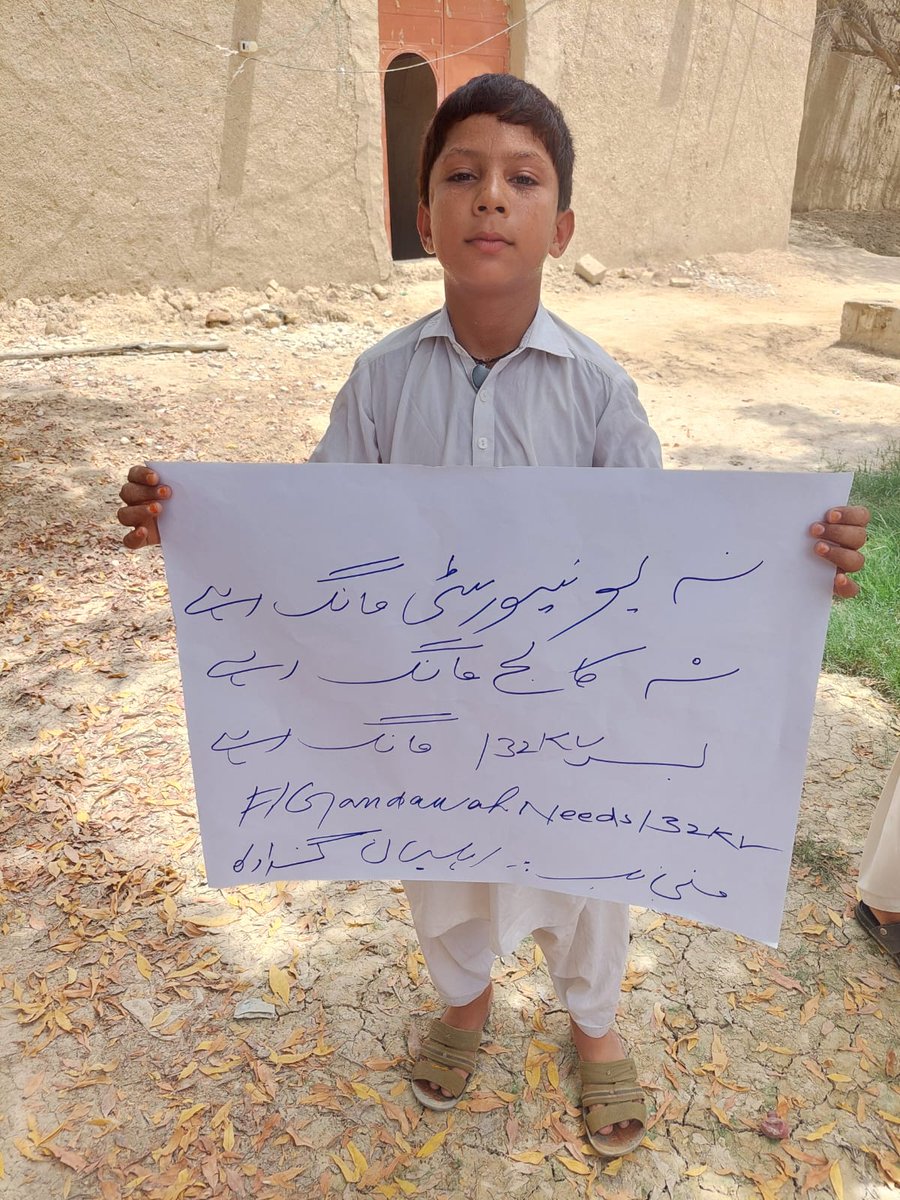 نہ یونیورسٹی مانگ رہے
نہ کالج مانگ رہے
بس 132KV مانگ رہے
#Gandawah Needs 132KV
منجانب :۔ اہلیان گنداواہ